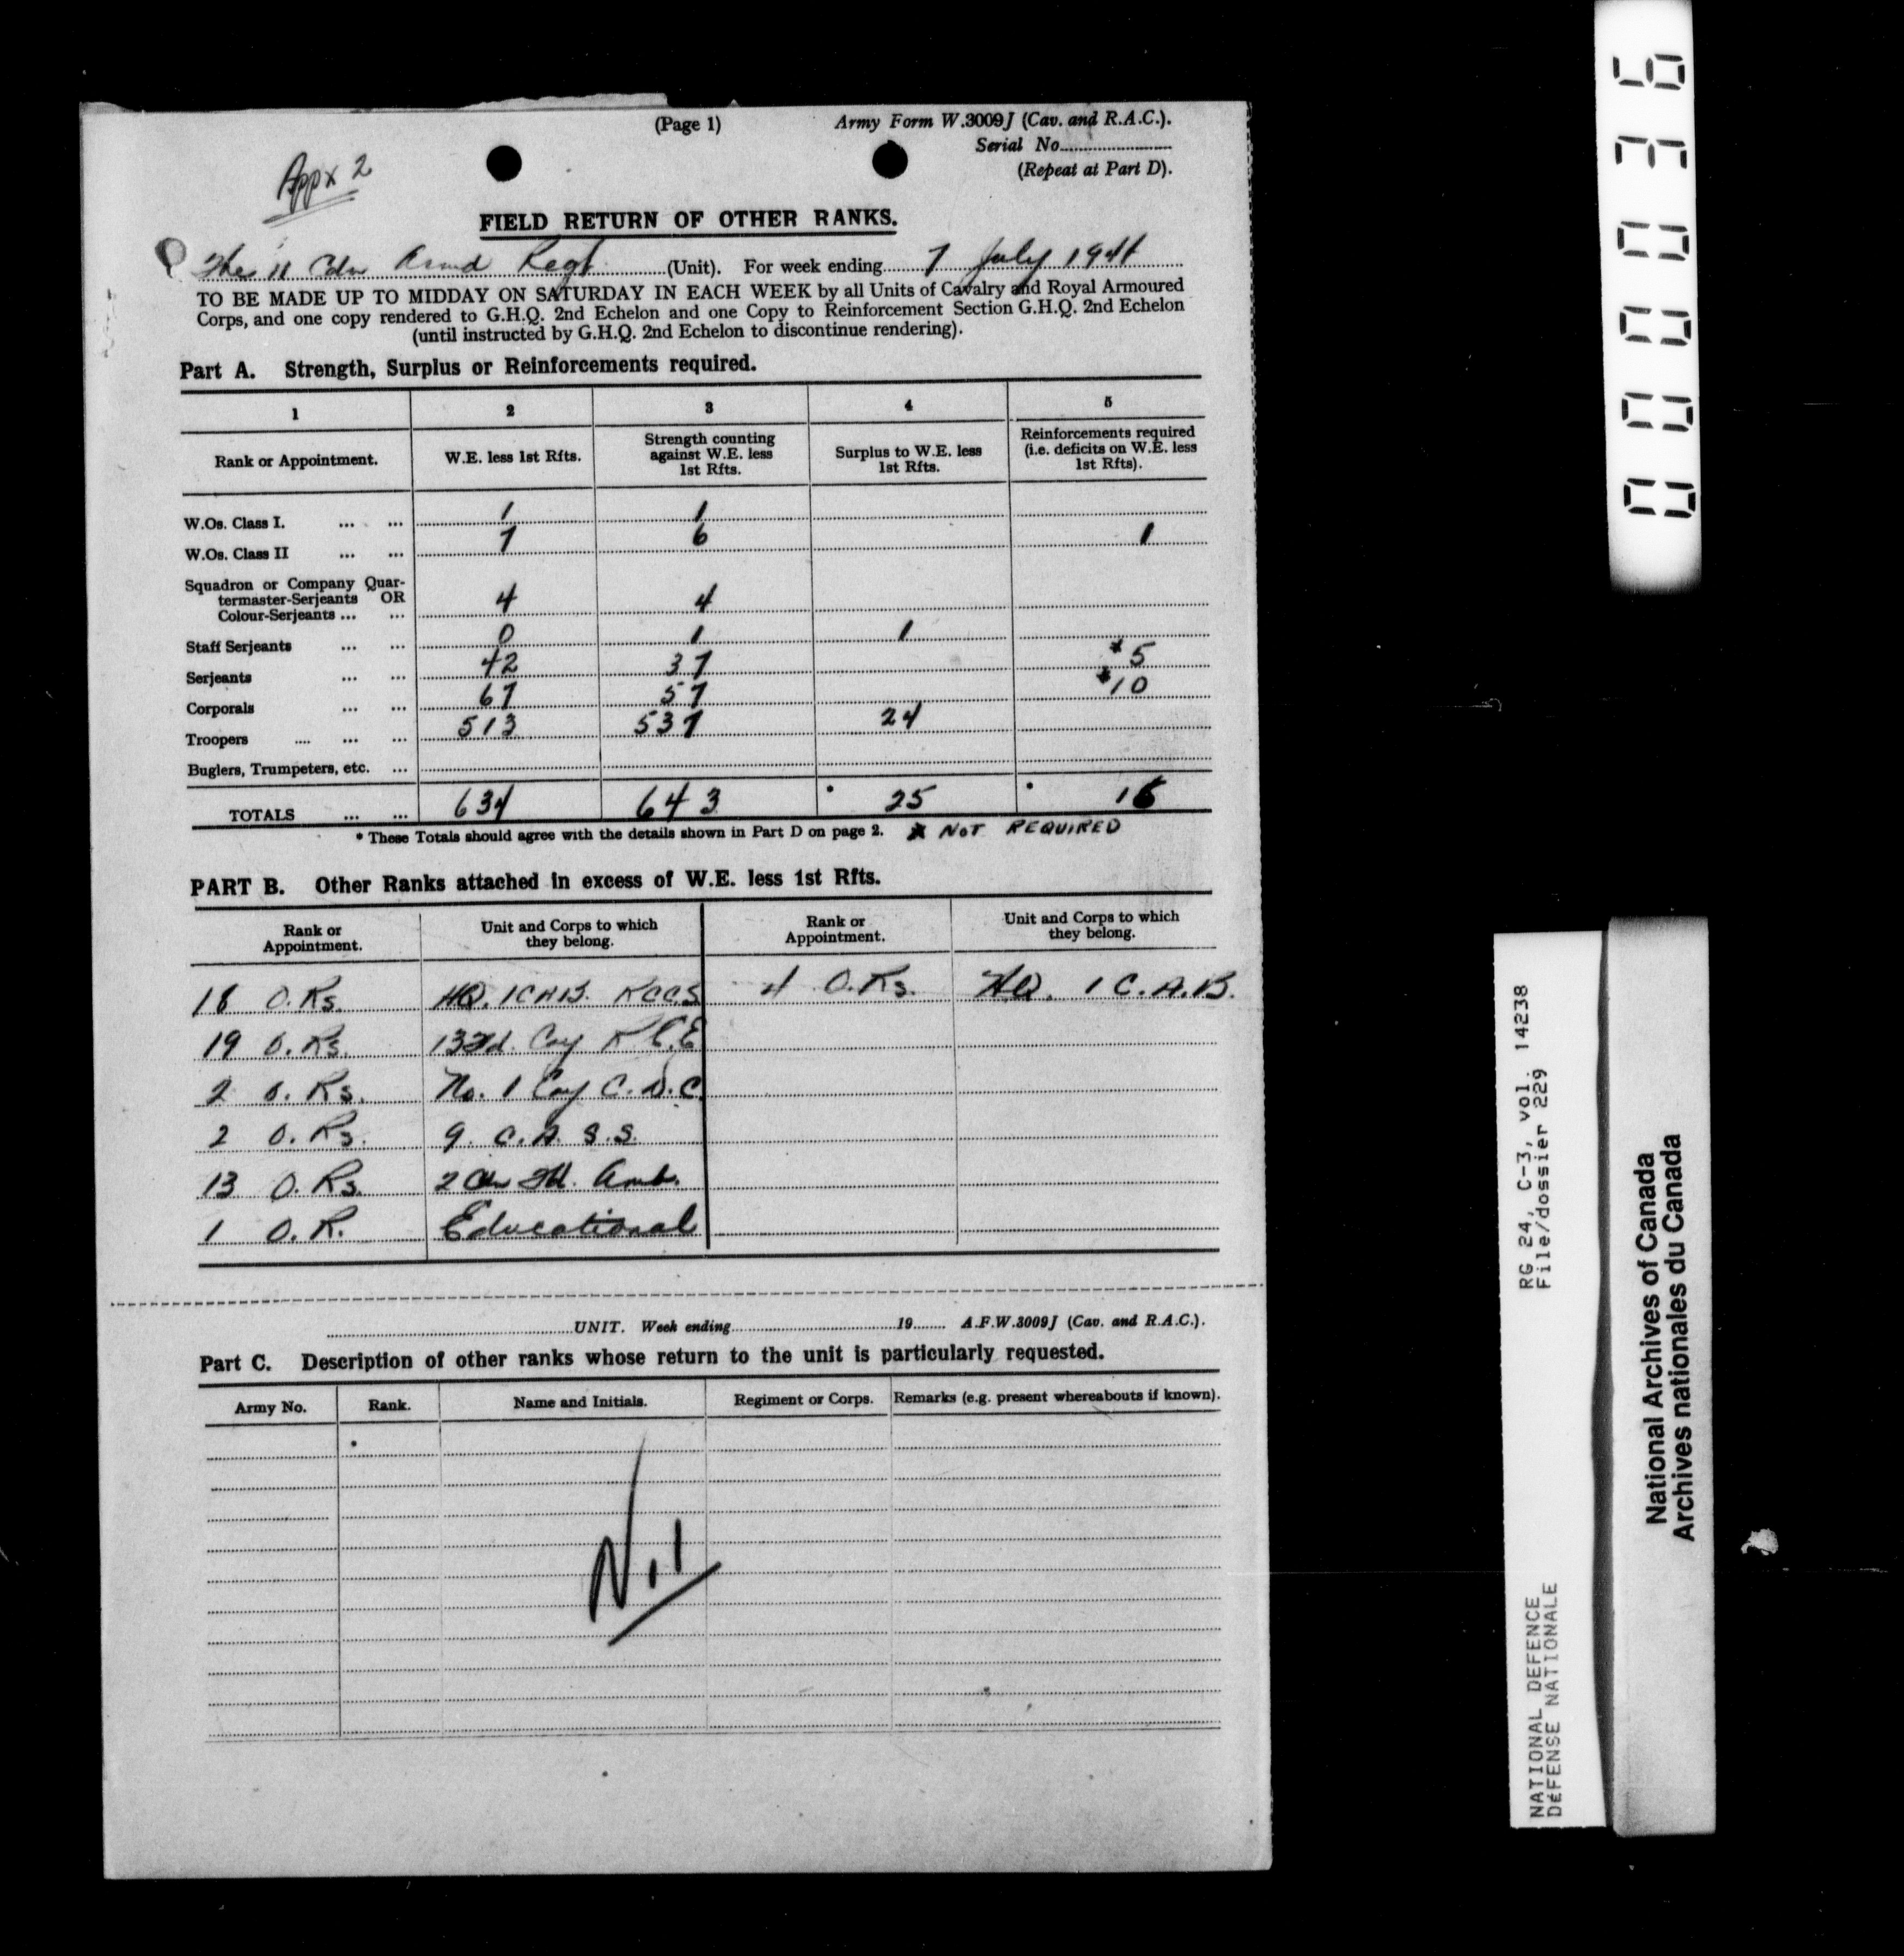 (Page 1)
Army Form W.3009J (Cav. and R.A.C.).
Serial No.
(Repeat at Part D).
Appx 2
FIELD RETURN OF OTHER RANKS.
The 11 Cdn Armd Regt (Unit). For week ending 7 July 1944
TO BE MADE UP TO MIDDAY ON SATURDAY IN EACH WEEK by all Units of Cavalry and Royal Armoured
Corps, and one copy rendered to G.H.Q. 2nd Echelon and one Copy to Reinforcement Section G.H.Q. 2nd Echelon
(until instructed by G.H.Q. 2nd Echelon to discontinue rendering).
Part A. Strength, Surplus or Reinforcements required.
1 2 3 4 5
Rank or Appointment. W.E. less 1st Rfts. Strength counting against W.E. less 1st Rfts. Surplus to W.E. less 1st Rfts. Reinforcements required (i.e. deficits on W.E. less 1st Rfts).
W.Os. Class I. ... ... 1 1
W.Os. Class II ... ... 7 6 1
Squadron or Company Quar-
termaster-Serjeants OR
Colour-Serjeants ... ... 4 4
Staff Serjeants ... ... 0 1 1
Serjeants ... ... 42 37 * 5
Corporals ... ... 67 57 * 10
Troopers .... ... ... 513 537 24
Buglers, Trumpeters, etc. ...
TOTALS ... ... 634 643 * 25 * 16
* These Totals should agree with the details shown in Part D on page 2. * NOT REQUIRED
PART B. Other Ranks attached in excess of W.E. less 1st Rfts.
Rank or Appointment. Unit and Corps to which they belong. Rank or Appointment. Unit and Corps to which they belong.
18 O.Rs. HQ. 1CAB. RCCS 4 O.Rs. HQ. 1 C.A.B.
19 O.Rs. 13 Fd. Coy R.C.E
2 O.Rs. No. 1 Coy C.D.C.
2 O.Rs. 9. C.A.S.S.
13 O.Rs. 2 Cdn Fd. Amb.
1 O.R. Educational
UNIT. Week ending 19 A.F.W.3009J (Cav. and R.A.C.).
Part C. Description of other ranks whose return to the unit is particularly requested.
Army No. Rank. Name and Initials. Regiment or Corps. Remarks (e.g. present whereabouts if known).
Nil
00036
RG 24, C-3, vol. 14238
File/dossier 229
NATIONAL DEFENCE
DÉFENSE NATIONALE
National Archives of Canada
Archives nationales du Canada